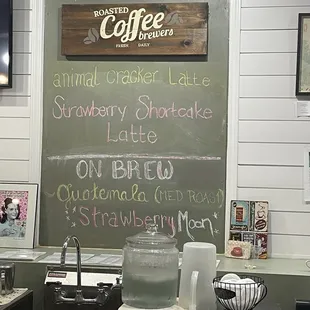 ROASTED
Coffee
brewers
FRESH DAILY
animal cracker Latte
Strawberry Shortcake
Latte
ON BREW
Guatemala (MED ROAST)
"Strawberry Moon"